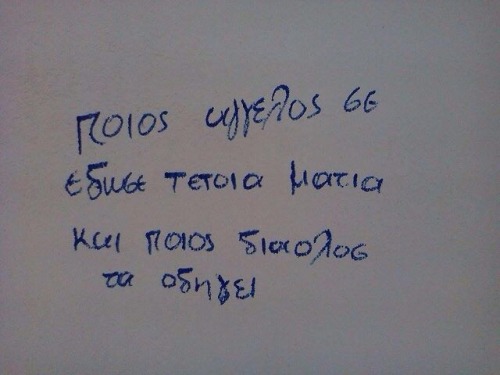 ποιος αγγελος σε
εδωσε τετοια ματια
και ποιος διαολος
τα οδηγει